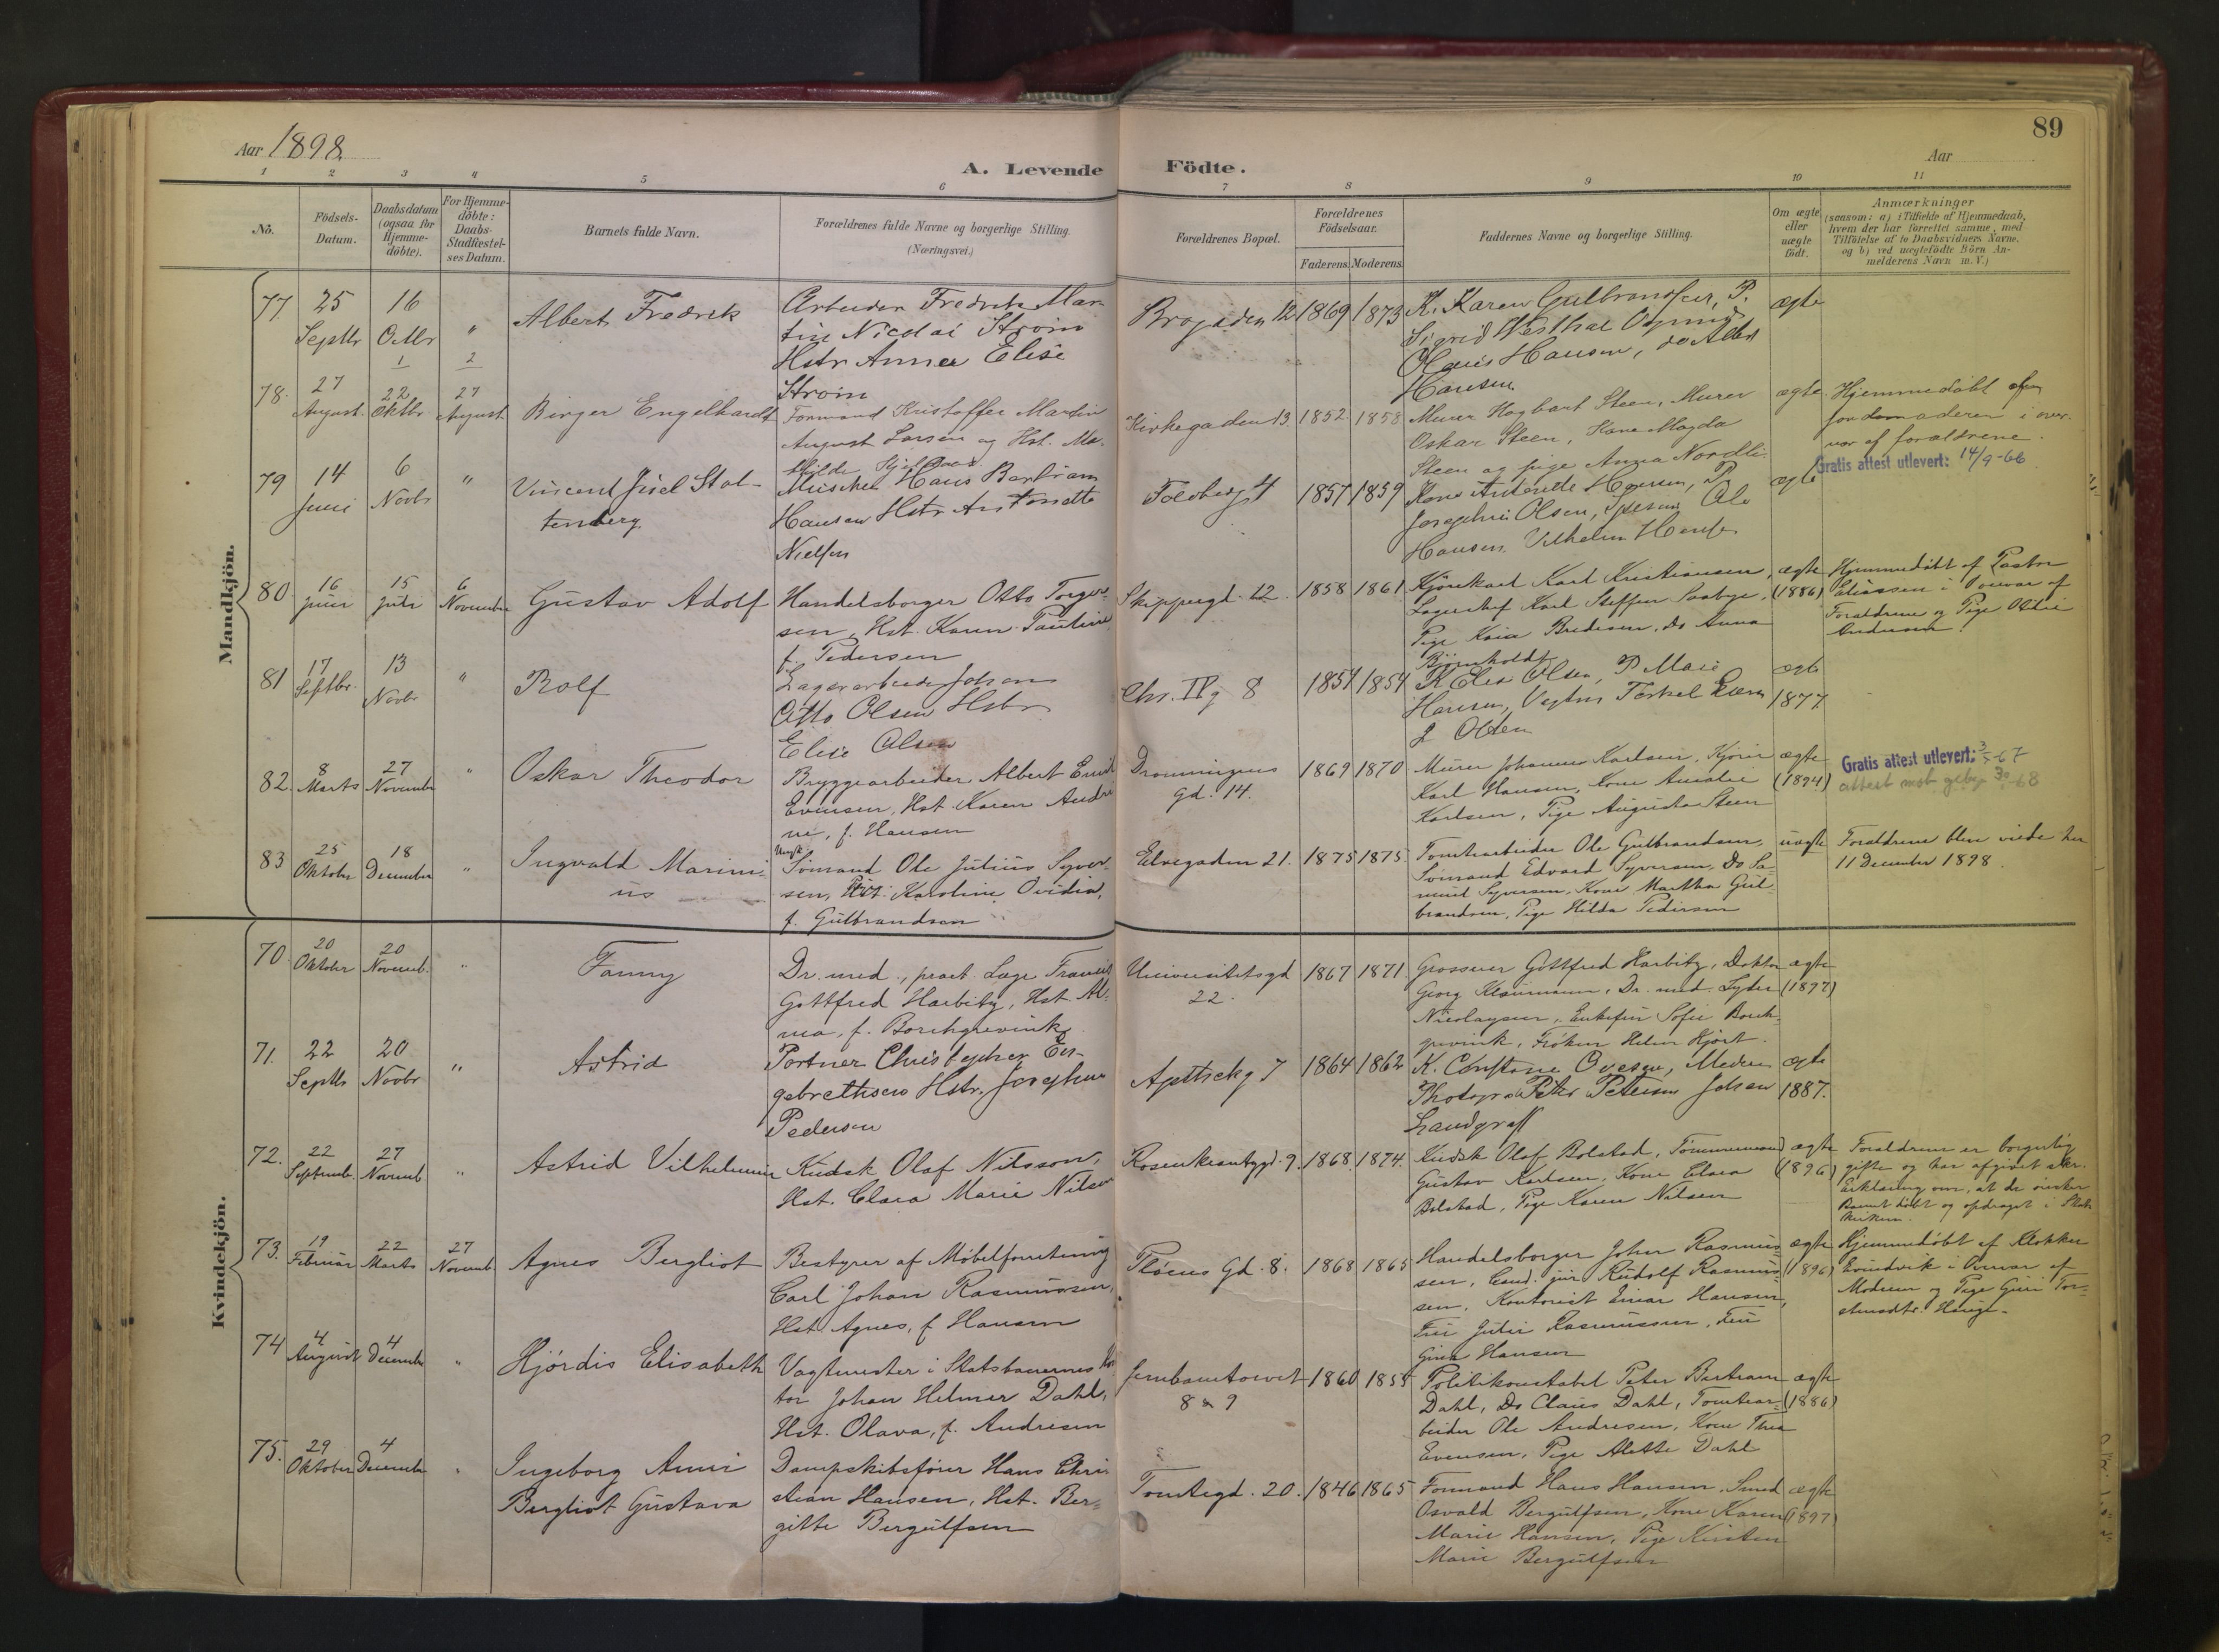 89
Aar 1898.
Aar
A. Levende Födte.
1 2 3 4 5 6 7 8 9 10 11
No.
Födsels-
Datum.
Daabsdatum
(ogsaa for
Hjemme-
döbte).
For Hjemme-
döbte:
Daabs-
Stadfæstel-
ses Datum.
Barnets fulde Navn.
Forældrenes fulde Navne og borgerlige Stilling.
(Næringsvei.)
Forældrenes Bopæl.
Forældrenes
Födselsaar.
Faderens. Moderens.
Faddernes Navne og borgerlige Stilling.
Om ægte
eller
uægte
födt.
Anmærkninger
(saasom: a) i Tilfælde af Hjemmedaab,
hvem der har forrettet samme, med
Tilföielse af to Daabsvidners Navne,
og b) ved uægtefödte Börn An-
melderens Navn m. V.)
Mandkjön.
77.
25
Septbr
16
Octbr
"
Albert Fredrik
Arbeider Fredrik Mar
tin Nicolai Ström
Hstr Anna Elise
Ström
Brogaden 12
1869
1873
K. Karen Gulbrandsen, P.
Sigrid Westhal
Hansen, do
Hansen
ægte
78.
27
August
1
22
Oktbr
2
27
August
Birger Engelhardt
Formand Kristoffer Martin
August Larsen og Hst. Ma-
thilde
Kirkegaden 13.
1852
1858
Murer Hagbart Steen, Murer
Oskar Steen, Kone Magda
Steen og pige Anna Nordli
ægte
Hjemmedöbt af
i over-
vær af forældrene.
79
14
Juni
6
Novbr
"
Vincent Stol-
tenberg.
Hans Bertram
Hansen Hstr Antonette
Nielsen
4
1857
1859
Kone Antonette Hansen, P
Josephine Olsen, Ole
Hansen Vilhelm
ægte
Gratis attest utlevert: 14/9-66
80
16
juni
15
juli
6
November
Gustav Adolf
Handelsborger Otto Torger-
sen, Hst. Karen Pauline
f. Pedersen
Skippergd. 12
1858
1861
Kjörekarl Karl Kristiansen,
Karl Steffen Saabye,
Pige Kaia Bredesen, do Anna
Björnholdt
ægte
(1886)
Hjemmedöbt af Pastor
Eliassen i overvær af
Forældrene og Pige Otilie
Andersen.
81
17
Septbr.
13
Novbr
"
Rolf
Lagerarbeider Johan
Otto Olsen Hstr
Elise Olsen
Chr. IV g 8
1857
1854
K Elise Olsen, P Marie
Hansen,
J Olsen
ægte
1877
82.
8
Marts
27
November
"
Oskar Theodor
Bryggearbeider Albert Emil
Evensen, Hst. Karen Andri
ne, f. Hansen
Dronningens
gd. 14.
1869
1870
Murer Johannes Karlsen,
Karl Hansen, Kone Amalie
Karlsen, Pige Augusta Steen
ægte
(1894)
Gratis attest utlevert: 3/5-67
attest mot gebyr 30/ -68
83
25
Oktober
18
December
"
Ingvald Marini-
us
Ungk.
Sömand Ole Julius Syver-
sen, Karoline Ovidia,
f. Gulbrandsen
Elvegaden 21.
1875
1875
Tomtearbeider Ole Gulbrandsen,
Sömand Edvard Syversen, Do Sa-
muel Syversen, Kone Martha Gul-
brandsen, Pige Hilda Pedersen
uægte
Forældrene blev viede her
11 December 1898.
Kvindekjön.
70.
20
Oktober
20
Novemb.
"
Fanny
Dr. med., pract. Læge Francis
Gottfred Harbitz, Hst. Al-
ma, f. Borchgrevink.
Universitetsgd
22.
1867
1871.
Grosserer Gottfred Harbitz, Doktor
Georg Klaumann, Dr. med. Lyder
Nicolaysen, Enkefru Sofie Borch-
grevink, Fröken Helen Hjort.
ægte
(1897)
71.
22
Septbr
20
Novbr
"
Astrid
Portner Christopher En-
gebrethsen Hstr. Josephine
Pedersen
Apothekg 7
1864
1862
K. Constance Ovesen,
Photogr Peter Petersen Johan
Landgraff
ægte
1887.
72.
22
Septemb.
27
Novemb
"
Astrid Vilhelmine
Kudsk Olaf Nilsson,
Hst. Clara Marie Nilsen
Rosenkrantzgd. 9.
1868
1874.
Kudsk Olaf Bolstad, Tömmermand
Gustav Karlsen, Kone Clara
Bolstad, Pige Karen Nilsen
ægte
(1896)
Forældrene er borgerlig
gifte og har afgivet skr.
Erklæring om, at de önsker
Barnet döbt og opdraget i Stats
kirken.
73.
19
Februar
22
Marts
27
Novemb.
Agnes Bergliot
Bestyrer af Möbelforretning
Carl Johan Rasmussen,
Hst. Agnes, f. Hansen
Pløens Gd. 8.
1868
1865
Handelsborger John Rasmus-
sen, Cand. jur Rudolf Rasmus-
sen, Kontorist Einar Hansen,
Fru Julie Rasmussen, Fru
Gina Hansen
ægte
(1896)
Hjemmedöbt af Klokker
Evindvik i Overvær af
Moderen og Pige Guri Tor-
stensdtr. Hauge.
74
4
August
4
December
"
Hjördis Elisabeth
Vagtmester i Statsbanernes Kon
tor Johan Helmer Dahl,
Hst. Olava, f. Andresen
Jernbanetorvet
8 & 9
1860
1858
Politikonstabel Peter Bertram
Dahl, Do Claus Dahl, Tomtear-
beider Ole Andresen, Kone Thea
Evensen, Pige Alette Dahl
ægte
(1886)
75.
29
Oktober
4
December
"
Ingeborg Anni
Bergliot Gustava
Dampskibsförer Hans Chri
stian Hansen, Hst. Ber-
gitte Bergulfsen
Tomtegd. 20.
1846
1865
Formand Hans Hansen, Smed
Osvald Bergulfsen, Kone Karen
Marie Hansen, Pige Kirsten
Marie Bergulfsen
ægte
(1897)